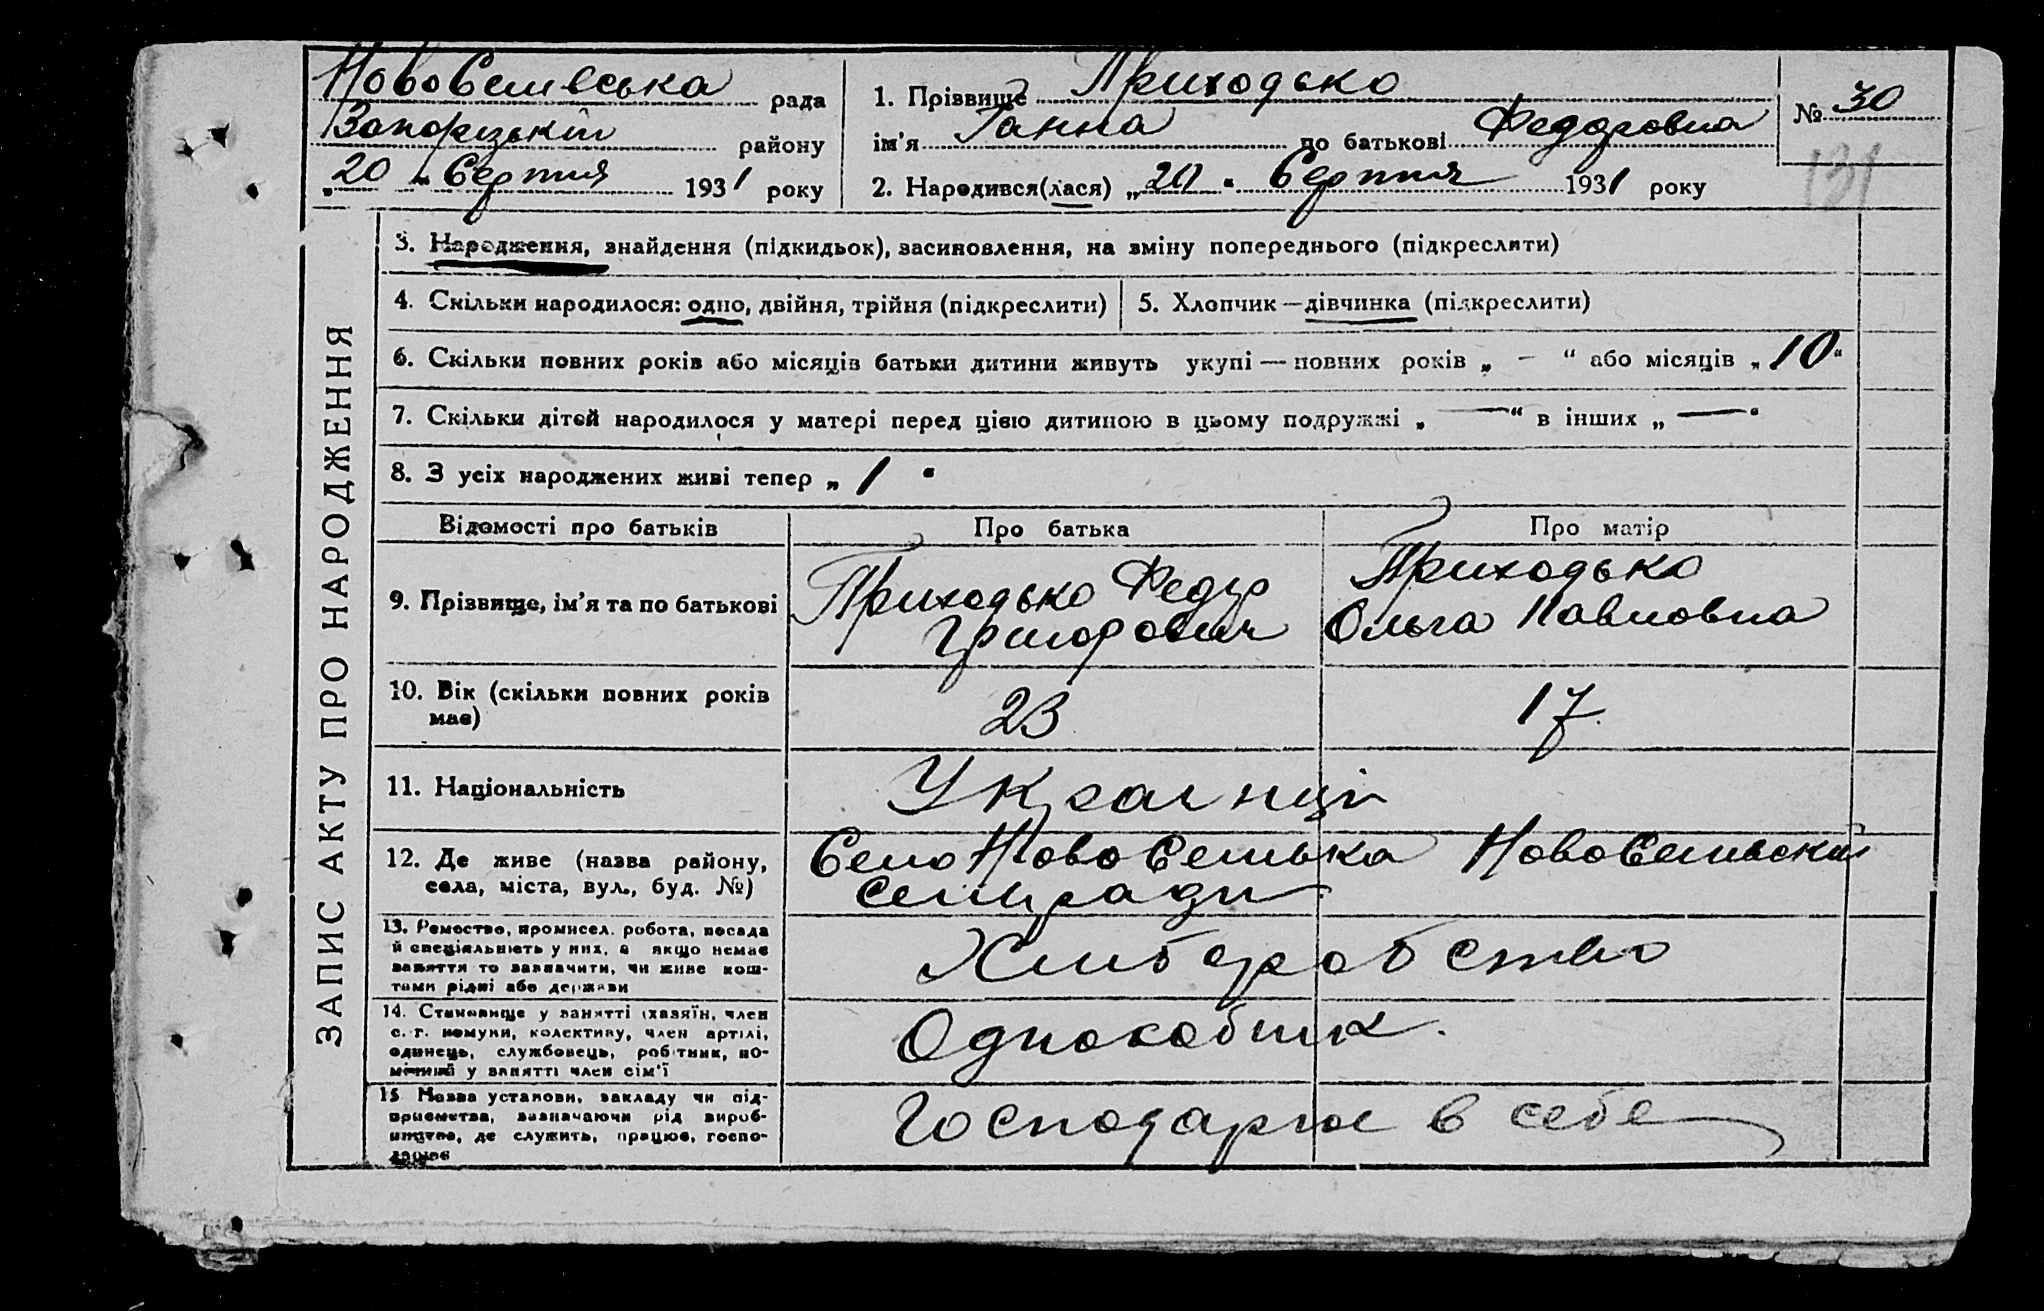 НовоСелівська рада
Запорізький району
„20" Серпня 1931 року
1. Прізвище Приходько
ім'я Ганна по батькові Федоровна
2. Народився(лася) „20" Серпня 1931 року
№ 30
131
ЗАПИС АКТУ ПРО НАРОДЖЕННЯ
3. Народження, знайдення (підкидьок), засиновлення, на зміну попереднього (підкреслити)
4. Скільки народилося: одно, двійня, трійня (підкреслити)
5. Хлопчик—дівчинка (підкреслити)
6. Скільки повних років або місяців батьки дитини живуть укупі — повних років „ – " або місяців „10"
7. Скільки дітей народилося у матері перед цією дитиною в цьому подружжі „ — " в інших „ — "
8. З усіх народжених живі тепер „ 1 "
Відомості про батьків
Про батька
Про матір
9. Прізвище, ім'я та по батькові
Приходько Федір
Григорович
Приходько
Ольга Павловна
10. Вік (скільки повних років
має)
23
17.
11. Національність
Українці
12. Де живе (назва району,
села, міста, вул., буд. №)
Село НовоСелівка НовоСелівський
сельради
13. Ремество, промисел. робота, посада
й спеціяльність у них, а якщо немає
заняття то зазначити, чи живе кош-
тами рідні або держави
Хліборобство
14. Становище у занятті (хазяїн, член
с.-г. комуни, колективу, член артілі,
одинець, службовець, робітник, по-
мічний у занятті член сім'ї
Однособник.
15 Назва установи, закладу чи під-
приємства, зазначаючи рід вироб-
ництва, де служить, працює, госпо-
дарює
Господарює в себе